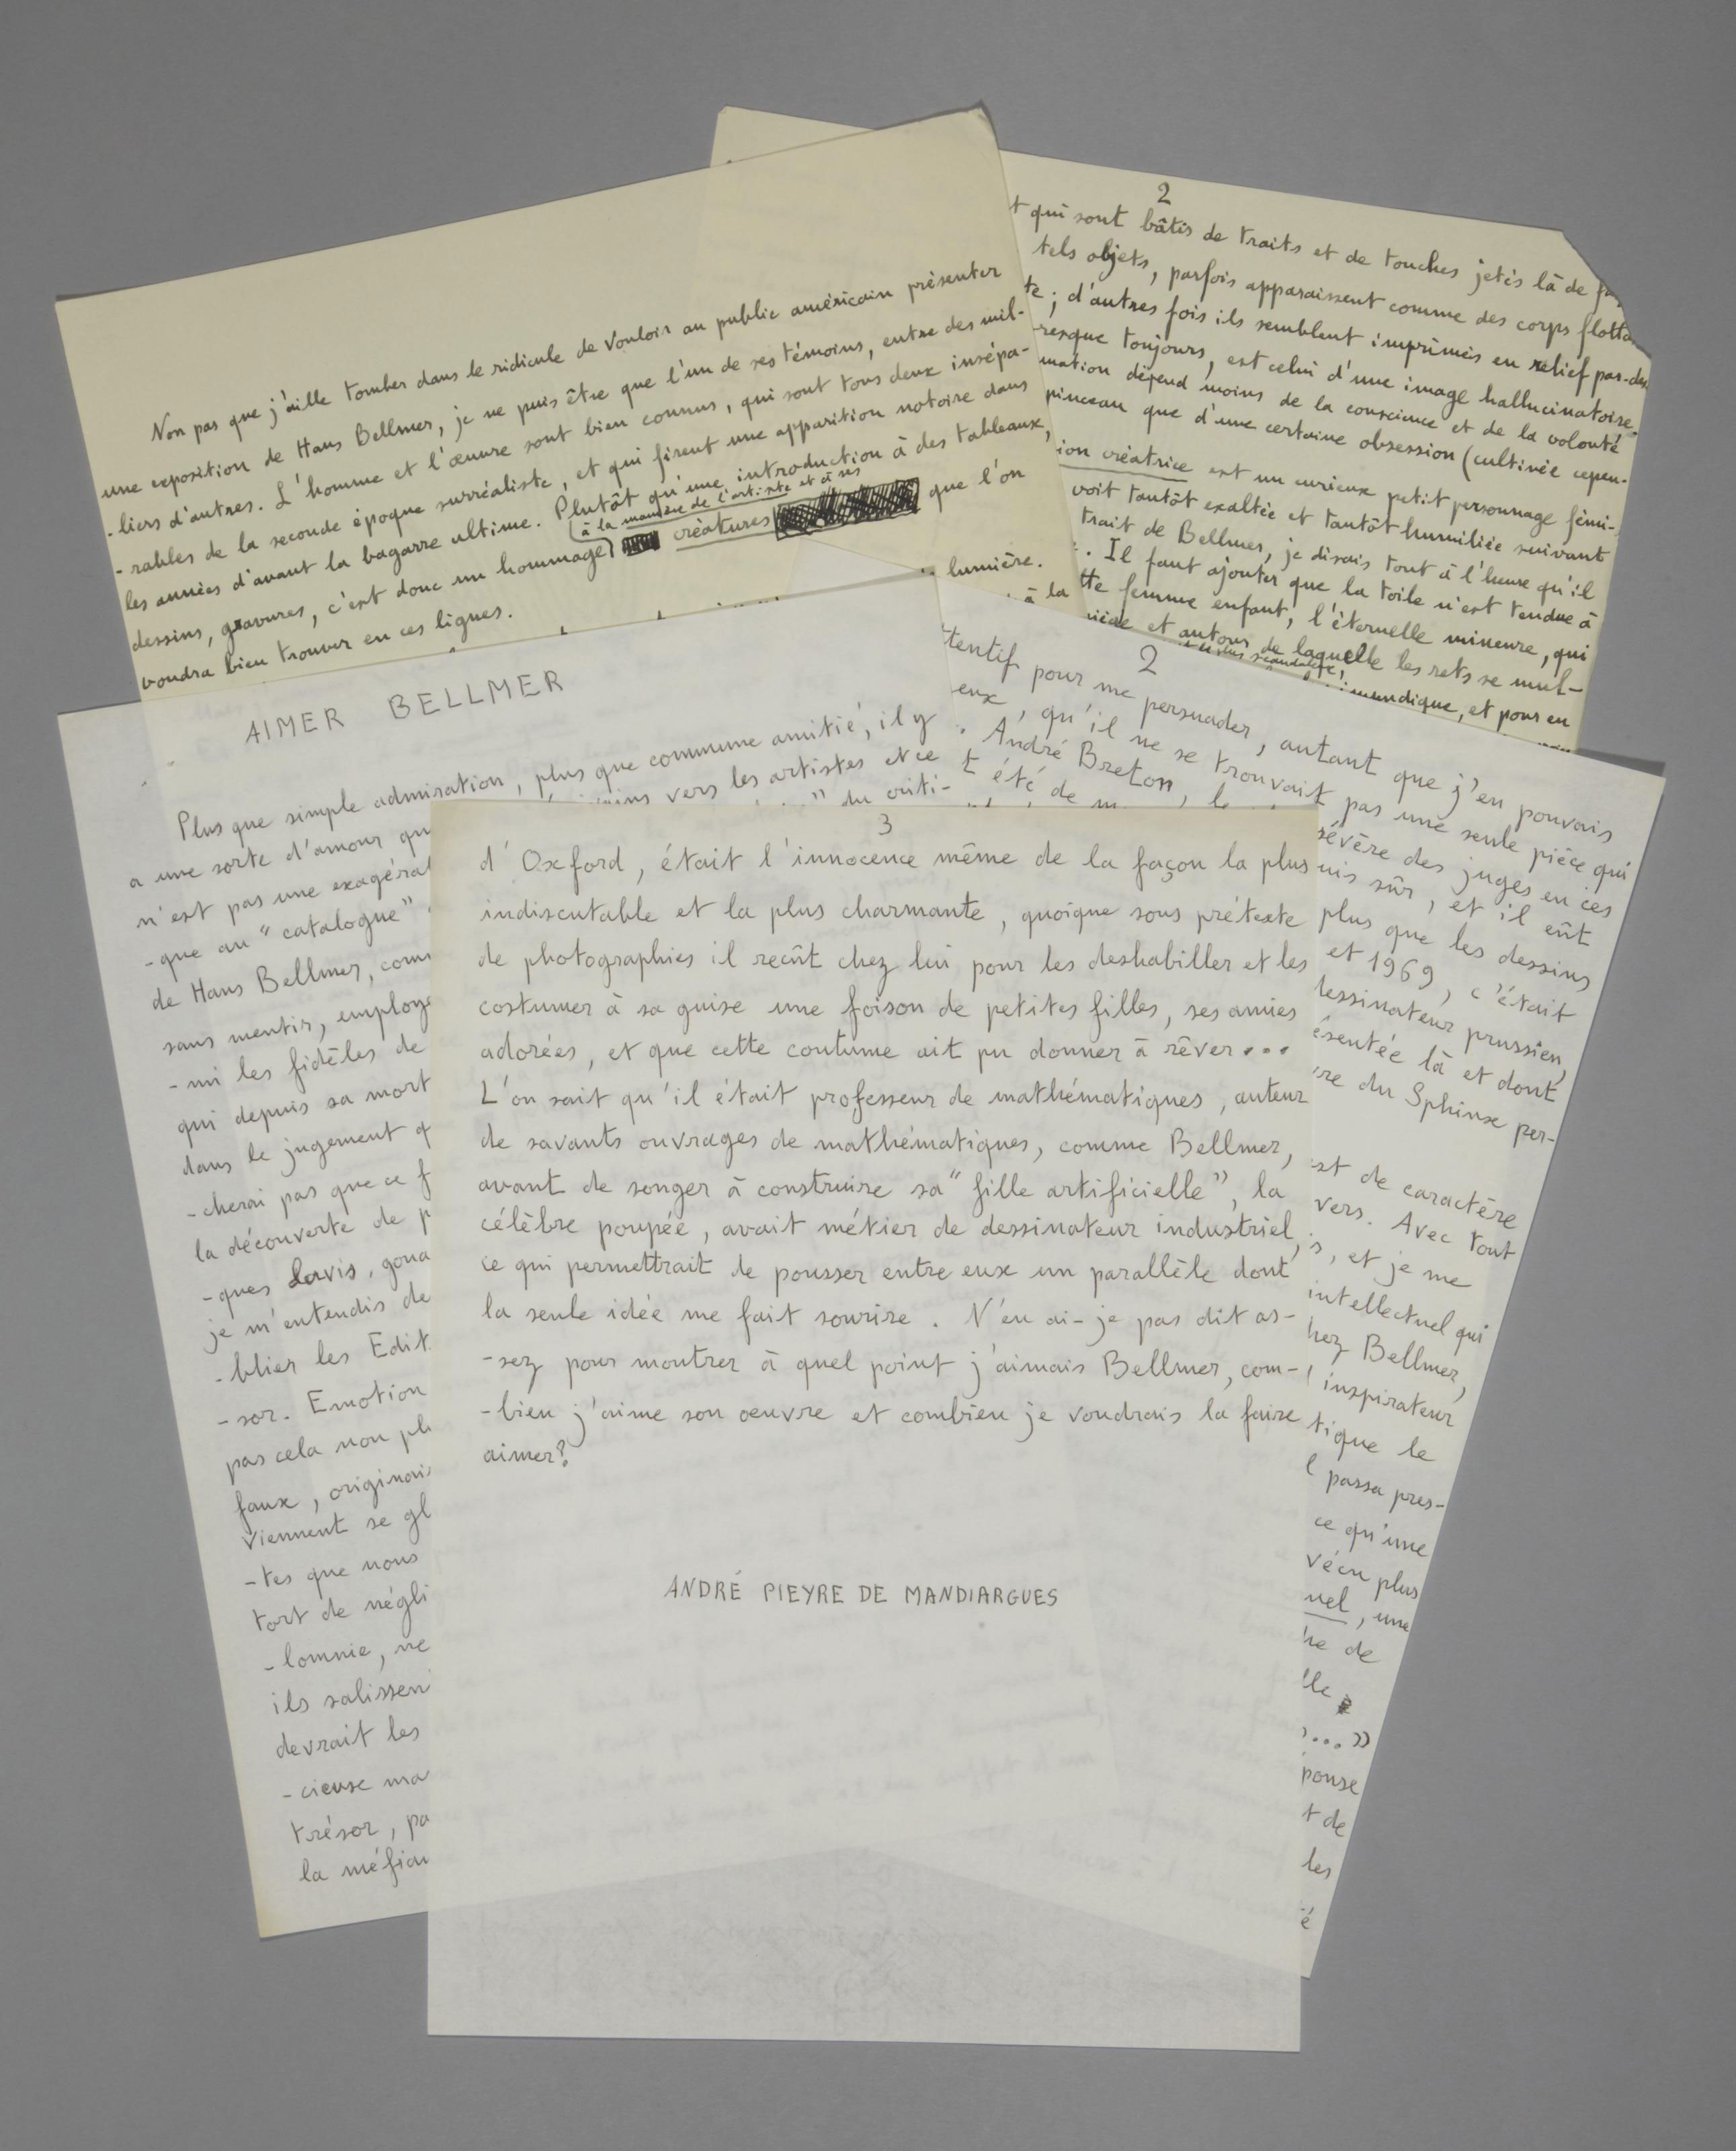 Non pas que j'aille tomber dans le ridicule de vouloir au public américain présenter
une exposition de Hans Bellmer, je ne puis être que l'un de ses témoins, entre des mil-
-liers d'autres. L'homme et l'œuvre sont bien connus, qui sont tous deux insépa-
-rables de la seconde époque surréaliste, et qui firent une apparition notoire dans
les années d'avant la bagarre ultime. Plutôt qu'une introduction à des tableaux,
à la manière de l'artiste et à ses
dessins, gravures, c'est donc un hommage créatures que l'on
voudra bien trouver en ces lignes.
lumière.
à la
2
t qui sont bâtis de traits et de touches jetés là de
tels objets, parfois apparaissent comme des corps flotta
te ; d'autres fois ils semblent imprimés en relief par-des
resque toujours, est celui d'une image hallucinatoire.
mation dépend moins de la conscience et de la volonté
pinceau que d'une certaine obsession (cultivée cepen-
ion créatrice est un curieux petit personnage fémi-
voit tantôt exaltée et tantôt humiliée suivant
trait de Bellmer, je disais tout à l'heure qu'il
. Il faut ajouter que la toile n'est tendue à
tte femme enfant, l'éternelle mineure, qui
piège et autour de laquelle les rets se mul-
, et pour en
AIMER BELLMER
Plus que simple admiration, plus que commune amitié, il y
a une sorte d'amour qu vers les artistes et ce
n'est pas une exagérat " du criti-
-que au "catalogue"
de Hans Bellmer, com
sans mentir, employe
-mi les fidèles de
qui depuis sa mort
dans le jugement q
-cherai pas que ce f
la découverte de p
-ques lavis, goua
je m'entendis de
-blier les Edit
-sor. Emotion
pas cela non plu
faux, originai
viennent se gl
-tes que nous
tort de négli
-lomnie, ne
ils salissen
devrait les
-cieuse ma
trésor, pa
la méfian
2
tentif pour me persuader, autant que j'en pouvais
eux, qu'il ne se trouvait pas une seule pièce qui
. André Breton, le sévère des juges en ces
t été de m uis sûr, et il eût
plus que les dessins
et 1969, c'était
dessinateur prussien,
ésentée là et dont
re du Sphinx per-
st de caractère
vers. Avec tout
s, et je me
intellectuel qui
hez Bellmer,
, inspirateur
tique le
l passa pres-
ce qu'une
vécu plus
nel, une
he de
lle
..."
ponse
t de
les
é
3
d'Oxford, était l'innocence même de la façon la plus
indiscutable et la plus charmante, quoique sous prétexte
de photographies il reçût chez lui pour les deshabiller et les
costumer à sa guise une foison de petites filles, ses amies
adorées, et que cette coutume ait pu donner à rêver...
L'on sait qu'il était professeur de mathématiques, auteur
de savants ouvrages de mathématiques, comme Bellmer,
avant de songer à construire sa "fille artificielle", la
célèbre poupée, avait métier de dessinateur industriel,
ce qui permettrait de pousser entre eux un parallèle dont
la seule idée me fait sourire. N'en ai-je pas dit as-
-sez pour montrer à quel point j'aimais Bellmer, com-
-bien j'aime son œuvre et combien je voudrais la faire
aimer?
ANDRÉ PIEYRE DE MANDIARGUES